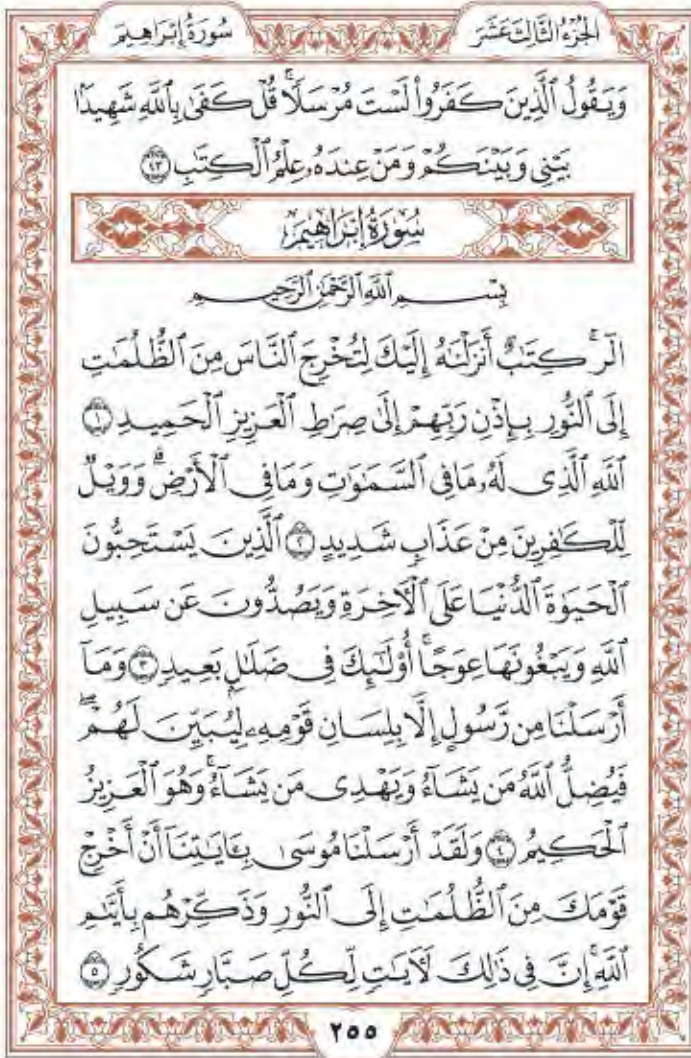 سُورَةُ إِبْرَاهِيم
الجُزْءُ الثَّالِثَ عَشَرَ
وَيَقُولُ ٱلَّذِينَ كَفَرُواْ لَسْتَ مُرْسَلٗاۚ قُلۡ كَفَىٰ بِٱللَّهِ شَهِيدَۢا
بَيۡنِي وَبَيۡنَكُمۡ وَمَنۡ عِندَهُۥ عِلۡمُ ٱلۡكِتَٰبِ ٤٣
سُورَةُ إِبْرَاهِيمَ
بِسۡمِ ٱللَّهِ ٱلرَّحۡمَٰنِ ٱلرَّحِيمِ
الٓرۚ كِتَٰبٌ أَنزَلۡنَٰهُ إِلَيۡكَ لِتُخۡرِجَ ٱلنَّاسَ مِنَ ٱلظُّلُمَٰتِ
إِلَى ٱلنُّورِ بِإِذۡنِ رَبِّهِمۡ إِلَىٰ صِرَٰطِ ٱلۡعَزِيزِ ٱلۡحَمِيدِ ١
ٱللَّهِ ٱلَّذِي لَهُۥ مَا فِي ٱلسَّمَٰوَٰتِ وَمَا فِي ٱلۡأَرۡضِۗ وَوَيۡلٞ
لِّلۡكَٰفِرِينَ مِنۡ عَذَابٖ شَدِيدٍ ٢ ٱلَّذِينَ يَسۡتَحِبُّونَ
ٱلۡحَيَوٰةَ ٱلدُّنۡيَا عَلَى ٱلۡأٓخِرَةِ وَيَصُدُّونَ عَن سَبِيلِ
ٱللَّهِ وَيَبۡغُونَهَا عِوَجًاۚ أُوْلَٰٓئِكَ فِي ضَلَٰلِۭ بَعِيدٖ ٣ وَمَآ
أَرۡسَلۡنَا مِن رَّسُولٍ إِلَّا بِلِسَانِ قَوۡمِهِۦ لِيُبَيِّنَ لَهُمۡۖ
فَيُضِلُّ ٱللَّهُ مَن يَشَآءُ وَيَهۡدِي مَن يَشَآءُۚ وَهُوَ ٱلۡعَزِيزُ
ٱلۡحَكِيمُ ٤ وَلَقَدۡ أَرۡسَلۡنَا مُوسَىٰ بِـَٔايَٰتِنَآ أَنۡ أَخۡرِجۡ
قَوۡمَكَ مِنَ ٱلظُّلُمَٰتِ إِلَى ٱلنُّورِ وَذَكِّرۡهُم بِأَيَّىٰمِ
ٱللَّهِۚ إِنَّ فِي ذَٰلِكَ لَأٓيَٰتٖ لِّكُلِّ صَبَّارٖ شَكُورٖ ٥
٢٥٥